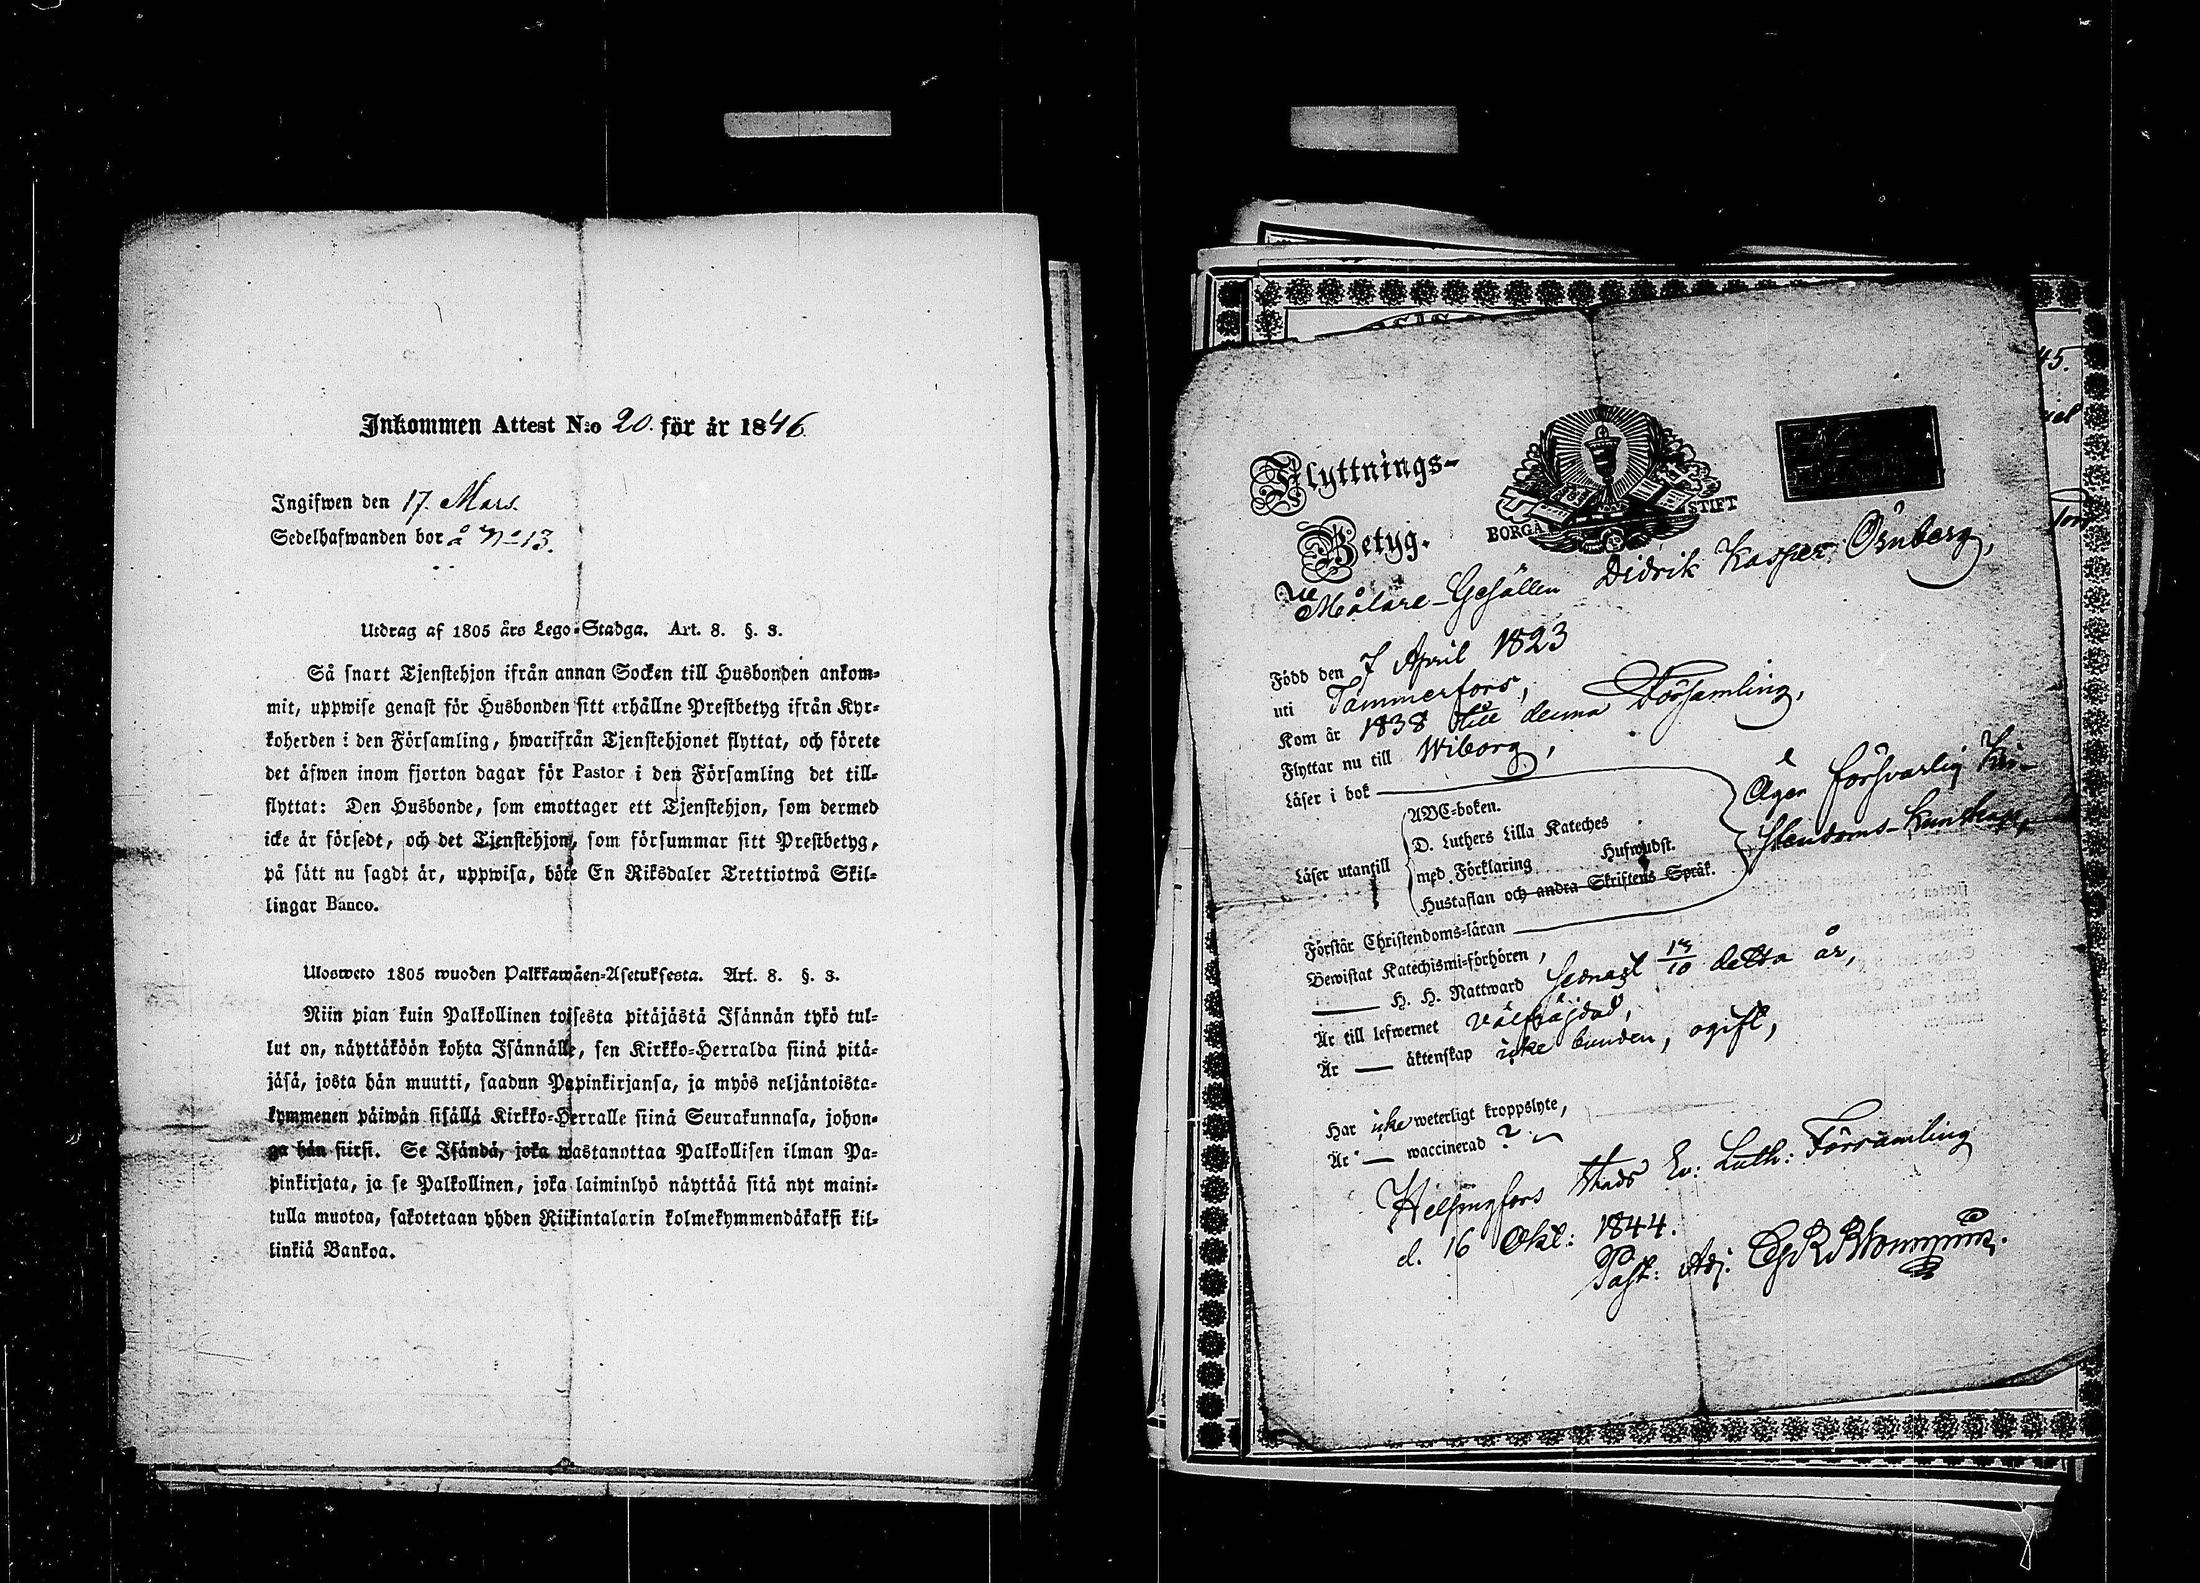 Inkommen Attest N:o 20. för år 1846.
Ingifwen den 17. Mars.
Sedelhafwanden bor å No 13.
Utdrag af 1805 års Lego-Stadga. Art. 8. §. 3.
Så snart Tjenstehjon ifrån annan Socken till Husbonden ankom-
mit, uppwise genast för Husbonden sitt erhållne Prestbetyg ifrån Kyr-
koherden i den Församling, hwarifrån Tjenstehjonet flyttat, och förete
det äfwen inom fjorton dagar för Pastor i den Församling det till-
flyttat: Den Husbonde, som emottager ett Tjenstehjon, som dermed
icke är försedt, och det Tjenstehjon, som försummar sitt Prestbetyg,
på sätt nu sagdt är, uppwisa, böte En Riksdaler Trettiotwå Skil-
lingar Banco.
Ulosweto 1805 wuoden Palkkawäen-Asetuksesta. Art. 8. §. 3.
Niin pian kuin Palkollinen toisesta pitäjästä Isännän tykö tul-
lut on, näyttäköön kohta Isännälle, sen Kirkko-Herralda siinä pitä-
jäsä, josta hän muutti, saadun Papinkirjansa, ja myös neljäntoista-
kymmenen päiwän sisällä Kirkko-Herralle siinä Seurakunnasa, johon-
ga hän siirsi. Se Isändä, joka wastanottaa Palkollisen ilman Pa-
pinkirjata, ja se Palkollinen, joka laiminlyö näyttää sitä nyt maini-
tulla muotoa, sakotetaan yhden Riikintalarin kolmekymmendäkaksi kil-
linkiä Bankoa.
45.
Flyttnings-
BORGÅ STIFT
Betyg.
Målare-Gesällen Didrik Kasper Örnberg,
Född den 7 April 1823
uti Tammerfors,
Kom år 1838 till denna Församling,
Flyttar nu till Wiborg,
Läser i bok
Läser utantill
ABC-boken.
D. Luthers Lilla Kateches
med Förklaring Hufwudst.
Hustaflan och andra Skriftens Språk.
Äger försvarlig Kri-
stendoms-Kunskap,
Förstår Christendoms-läran
Bewistat Katechismi-förhören,
H. H. Nattward senast 13/10 detta år,
Är till lefwernet välfräjdad,
Är äktenskap icke bunden, ogift,
Har icke weterligt kroppslyte,
Är waccinerad ?
Helsingfors Stads Ev: Luth: Församling
d. 16 Okt: 1844.
Past: Adj: